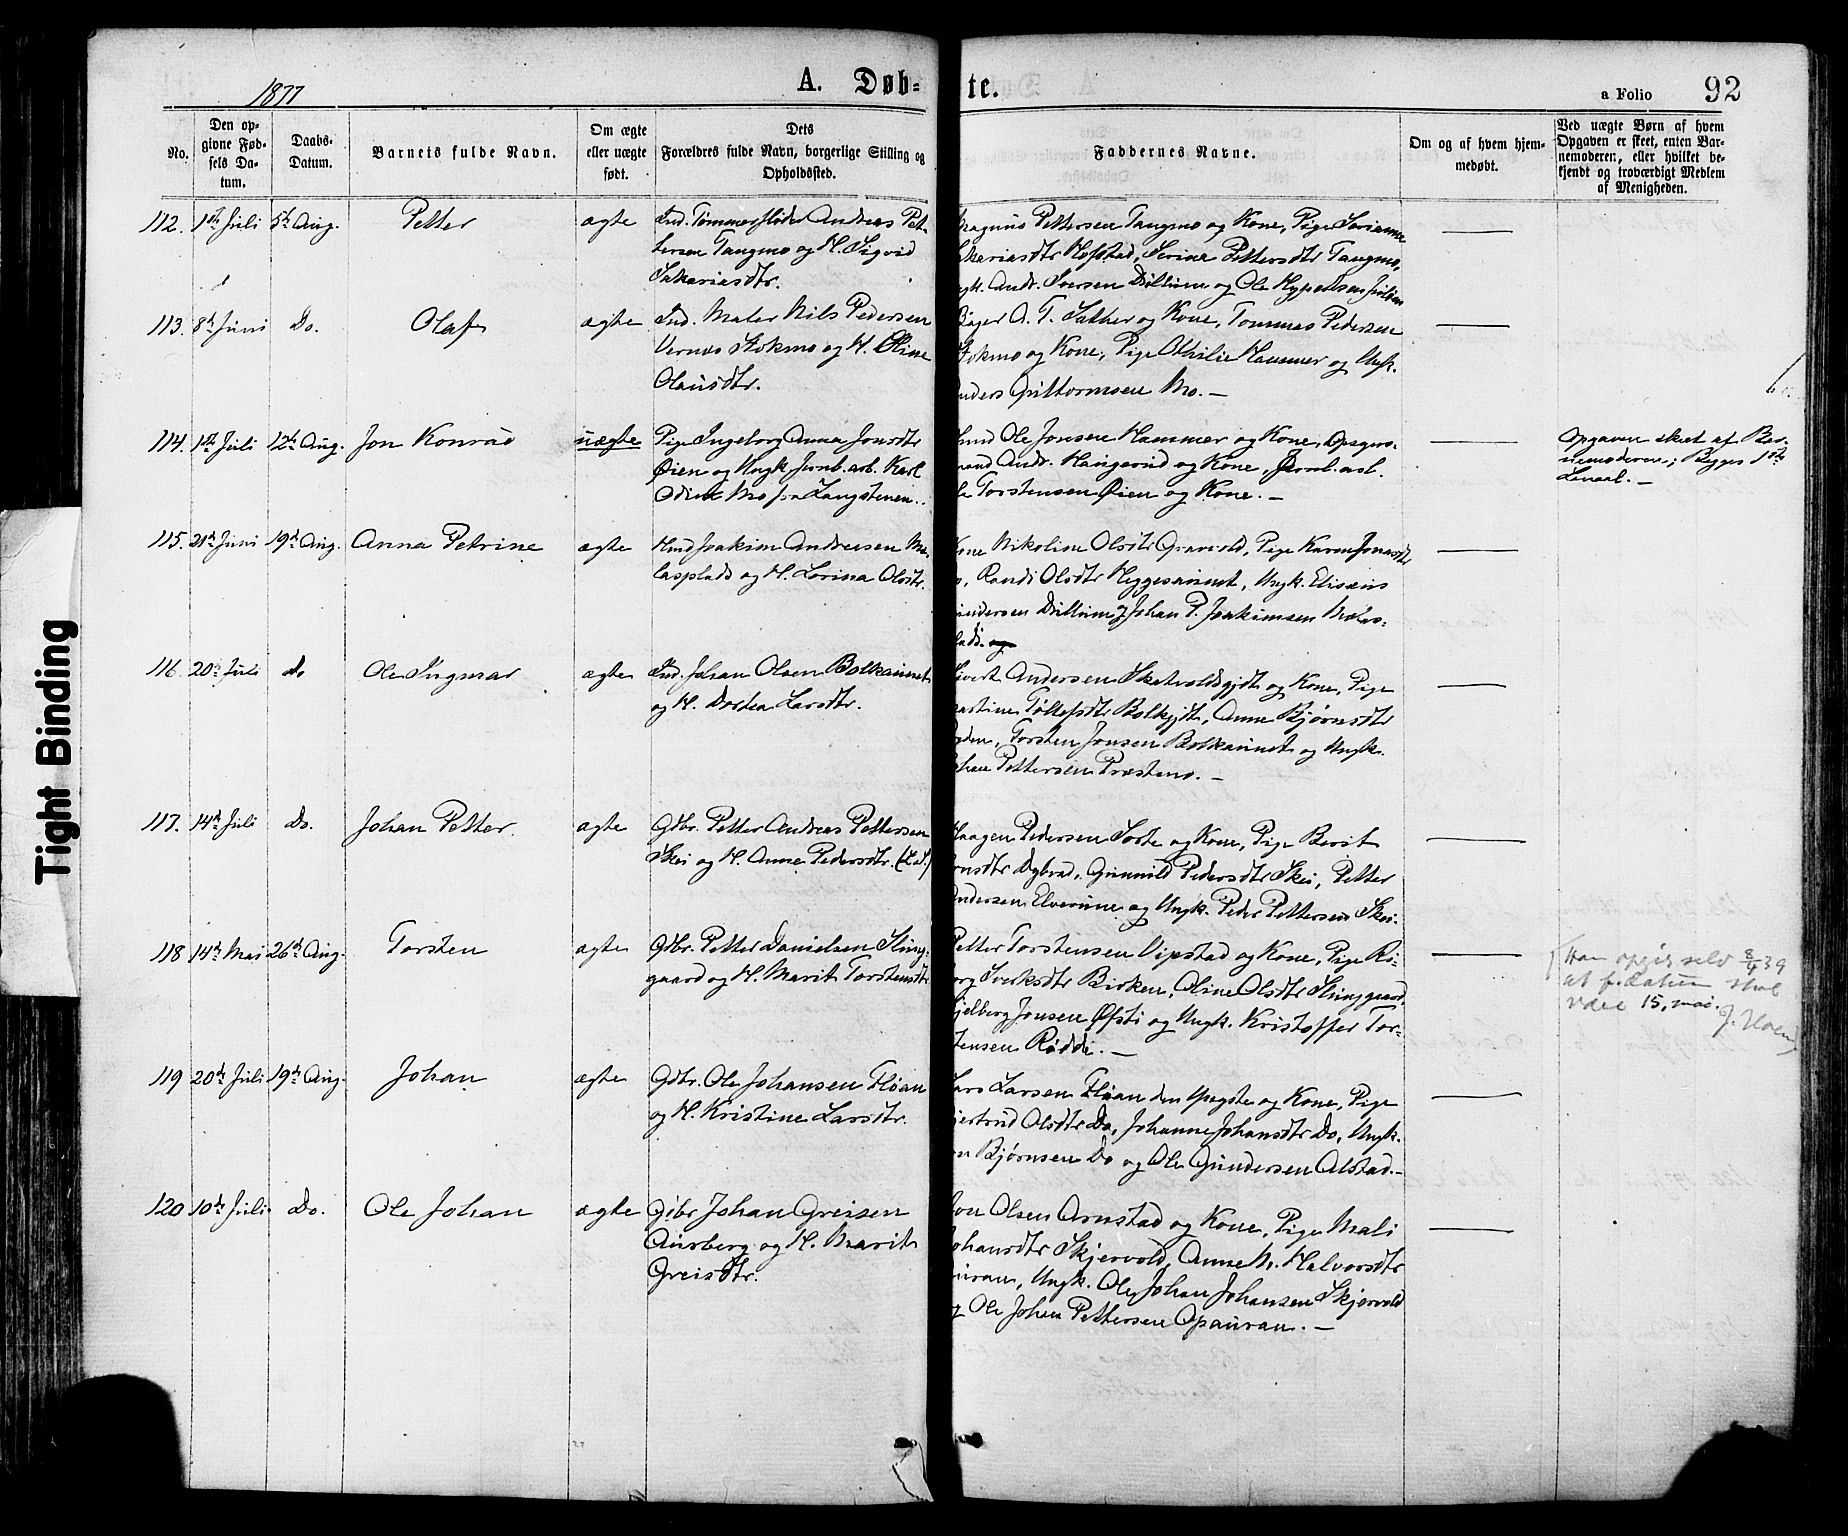 1877 A. Døb- te. a Folio 92
No.
Den op-
givne Fød-
sels Da-
tum.
Daabs-
Datum.
Barnets fulde Navn.
Om ægte
eller uægte
født.
Dets
Forældres fulde Navn, borgerlige Stilling og
Opholdssted.
Faddernes Navne.
Om og af hvem hjem-
medøbt.
Ved uægte Børn af hvem
Opgaven er skeet, enten Bar-
nemoderen, eller hvilket be-
kjendt og troværdigt Medlem
af Menigheden.
112. 1ste Juli 5te Aug. Petter ægte Ind. Tømmerfløder Andreas Pet-
tersen Tangmo og H. Sigrid
Sakariasdtr.
Magnus Pettersen Tangmo og Kone, Pige
Sakariasdtr Hofstad, Serina Pettersdtr Tangmo,
Ungk. Andr. Iversen Dullum og Ole
113. 8de Juni Do. Olaf ægte Ind. Maler Nils Pedersen
Vernes Stokmo og H. Oline
Olausdtr.
A. T. Sather og Kone, Tommas Pedersen
Stokmo og Kone, Pige Othilie Hammer og Ungk.
Anders Guttormsen Mo. —
114. 1ste Juli 12te Aug. Jon Konrad uægte Pige Ingeborg Anna Jonsdtr
Øien og Ungk. Jernb.arb. Karl
Odin Mo fra Langstenen.
Ole Jonsen Hammer og Kone,
Andr. Haugerud og Kone, Jernb.arb.
Ole Torstensen Øien og Kone. —
Opgaven skeet af Bar-
nemoderen; Begges 1ste
Leiermaal. —
115. 21de Juni 19de Aug. Anna Petrine ægte Hmd Joakim Andreasen Mæ-
lasplads og H. Lorina Olsdtr.
Kone Nikoline Olsdtr Gravvold, Pige Karen Jonasdtr
Do, Randi Olsdtr Heggesaunet, Ungk. Elisæus
Gundersen Dullum og Johan P. Joakimsen Mælas-
plads. og
116. 20de Juli do Ole Ingmar ægte Ind. Johan Olsen Bolkaunet
og H. Dortea Larsdtr.
Sivert Andersen Skatvoldsgjdt og Kone, Pige
Martine Tollefsdtr Bolkgjdt, Anne Bjørnsdtr
Torsten Jonsen Bolkaunet og Ungk.
Johan Pettersen Præstmo. —
117. 14de Juli Do. Johan Petter. ægte Gdbr. Petter Andreas Pettersen
Skei og H. Anne Pedersdtr.
Haagen Pedersen Sorte og Kone, Pige Berit
Arnsdtr Dybvad, Gunnild Pedersdtr Skei, Petter
Andersen Elverum og Ungk. Peder Pettersen Skei.
118 14de Mai 26de Aug. Torsten ægte Gdbr. Petter Danielsen Sting-
gaard og H. Marit Torstensdtr
Petter Torstensen Vipstad og Kone, Pige
Sverksdtr Birken, Oline Olsdtr Stinggaard,
Jonsen Øfsti og Ungk. Kristoffer Tor-
stensen Røddi. —
Han opgis selv 8/4 39
at f. datum skal
være 15. mai.
119 20de Juli 19de Aug. Johan ægte Gdbr. Ole Johansen Fløan
og H. Kristine Larsdtr.
Lars Larsen Fløan den yngste og Kone, Pige
Gjertrud Olsdtr Do, Johanne Johansdtr Do, Ungk.
Jon Bjørnsen Do og Ole Gundersen Alstad. —
120 10de Juli Do. Ole Johan ægte Gdbr Johan Greisen
Aurberg og H. Marit
Greisdtr.
Jon Olsen Arnstad og Kone, Pige Mali
Johansdtr Skjervold, Anne M. Halvorsdtr
Auran, Ungk. Ole Johan Johansen Skjervold
og Ole Johan Pettersen Opauran. —
Tight Binding